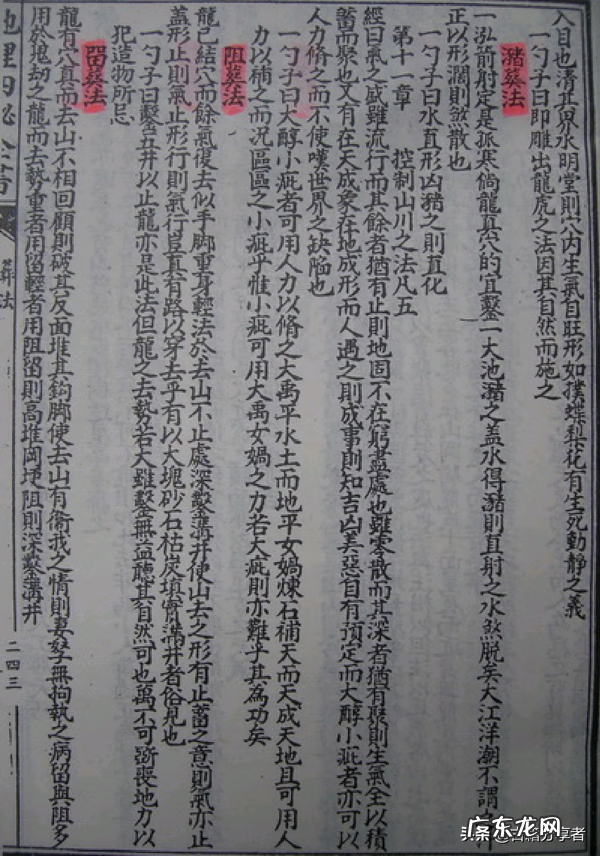 入目也清其界水明堂則穴内生氣自旺形如撲蝶梨花有生死動靜之義
一勺子曰即雕出龍虎之法因其自然而施之
瀦葬法
一泓前射定是孤寒倘龍真穴的宜鑿一大池瀦之盖水得瀦則直射之水煞脱矣大江洋潮不謂
正以形濶則煞散也
一勺子曰水直形凶瀦之則直化
第十章 控制山川之法凡五
經曰氣之盛雖流行而其餘者猶有止則地固不在窮盡處也雖零散而其深者猶有聚則生氣全以積
蓄而聚也又有在天成象在地成形而人遇之則成事則知吉凶美惡自有預定而大醇小疵者亦可以
人力脩之而不使嘆世界之缺陷也
一勺子曰大醇小疵者可用人力以脩之大禹平水土而地平女媧煉石補天而天成天地且可用人
力以補之而况區區之小疵乎惟小疵可用大禹女媧之力若大疵則亦難乎其為功矣
阻葬法
龍已結穴而餘氣復去似手脚重身輕法於去山不止處深鑿溝井使山去之形有止蓄之意則氣亦止
盖形止則氣止形行則氣行豈真有路以穿去乎有以大塊砂石枯炭填實溝井者俗見也
一勺子曰鑿五井以止龍亦是此法但龍之去勢若大雖鑿無益聽其自然可也萬不可斵喪地力以
犯造物所忌
留葬法
龍有穴真而去山不相回顧則破其反面堆其鈎脚使去山有衛我之情則妻孥無拘執之病留與阻多
用於鬼劫之龍而去勢重者用留輕者用阻留則高堆岡埂阻則深鑿溝井
地理囚秘全書
葬法
二四三
头条@古籍分享者
广东龙网